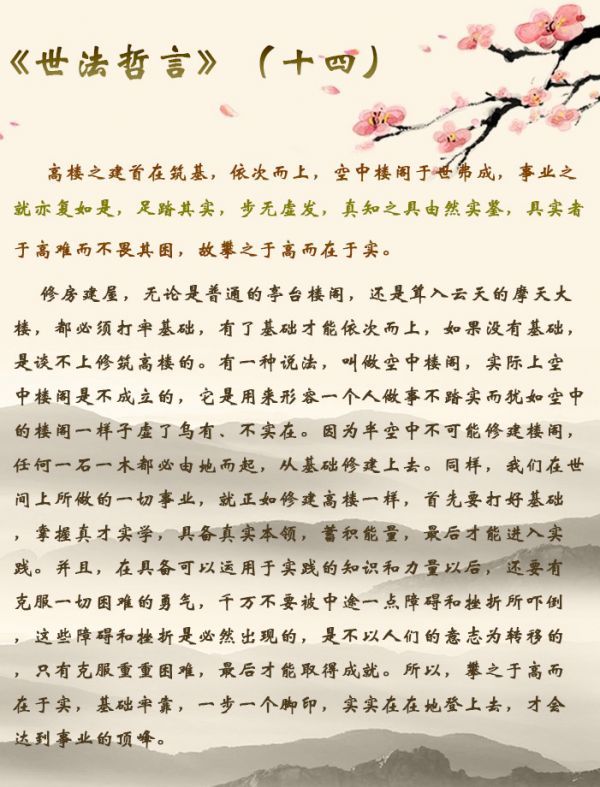 《世法哲言》（十四）
高楼之建首在筑基，依次而上，空中楼阁于世弗成，事业之
就亦复如是，足踏其实，步无虚发，真知之具由然实鉴，具实者
于高难而不畏其困，故攀之于高而在于实。
修房建屋，无论是普通的亭台楼阁，还是耸入云天的摩天大
楼，都必须打牢基础，有了基础才能依次而上，如果没有基础，
是谈不上修筑高楼的。有一种说法，叫做空中楼阁，实际上空
中楼阁是不成立的，它是用来形容一个人做事不踏实而犹如空中
的楼阁一样子虚了乌有、不实在。因为半空中不可能修建楼阁，
任何一石一木都必由地而起，从基础修建上去。同样，我们在世
间上所做的一切事业，就正如修建高楼一样，首先要打好基础
，掌握真才实学，具备真实本领，蓄积能量，最后才能进入实
践。并且，在具备可以运用于实践的知识和力量以后，还要有
克服一切困难的勇气，千万不要被中途一点障碍和挫折所吓倒
，这些障碍和挫折是必然出现的，是不以人们的意志为转移的
，只有克服重重困难，最后才能取得成就。所以，攀之于高而
在于实，基础牢靠，一步一个脚印，实实在在地登上去，才会
达到事业的顶峰。